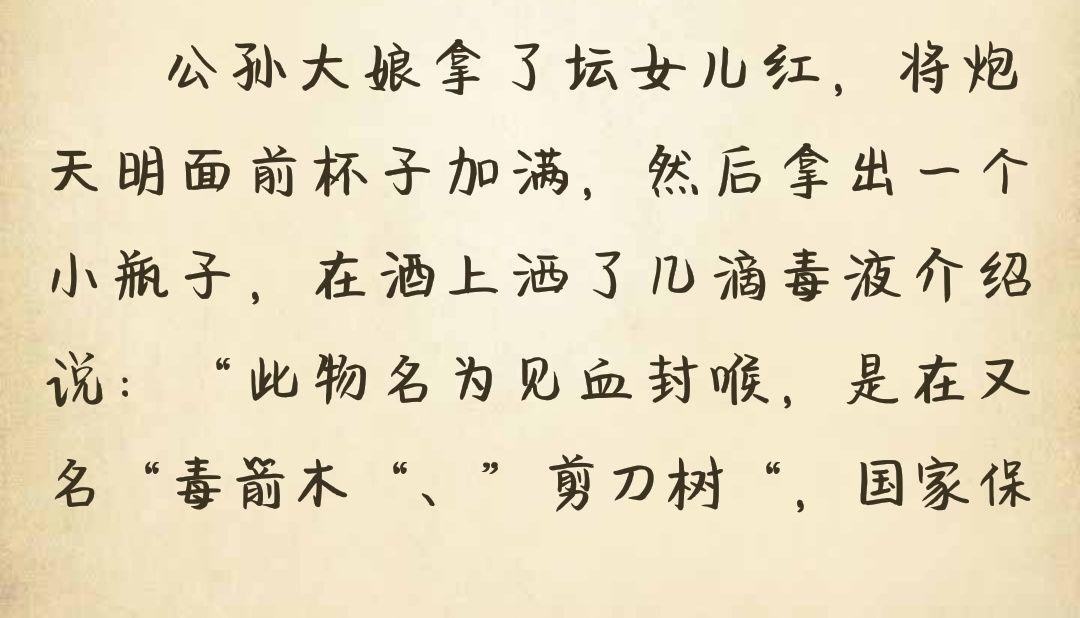 公孙大娘拿了坛女儿红，将炮
天明面前杯子加满，然后拿出一个
小瓶子，在酒上洒了几滴毒液介绍
说：“此物名为见血封喉，是在又
名“毒箭木“、”剪刀树“，国家保